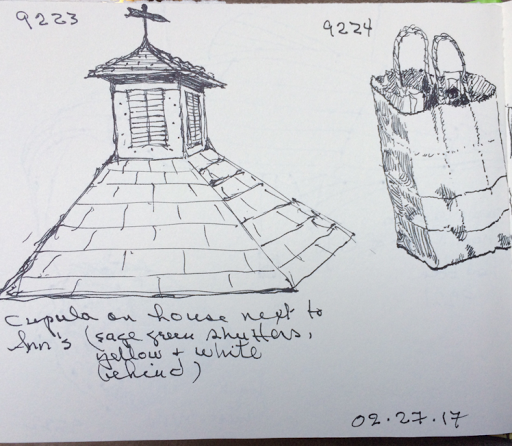 9223
9224
Cupula on house next to
Ann's (sage green shutters,
yellow + white
behind)
02.27.17